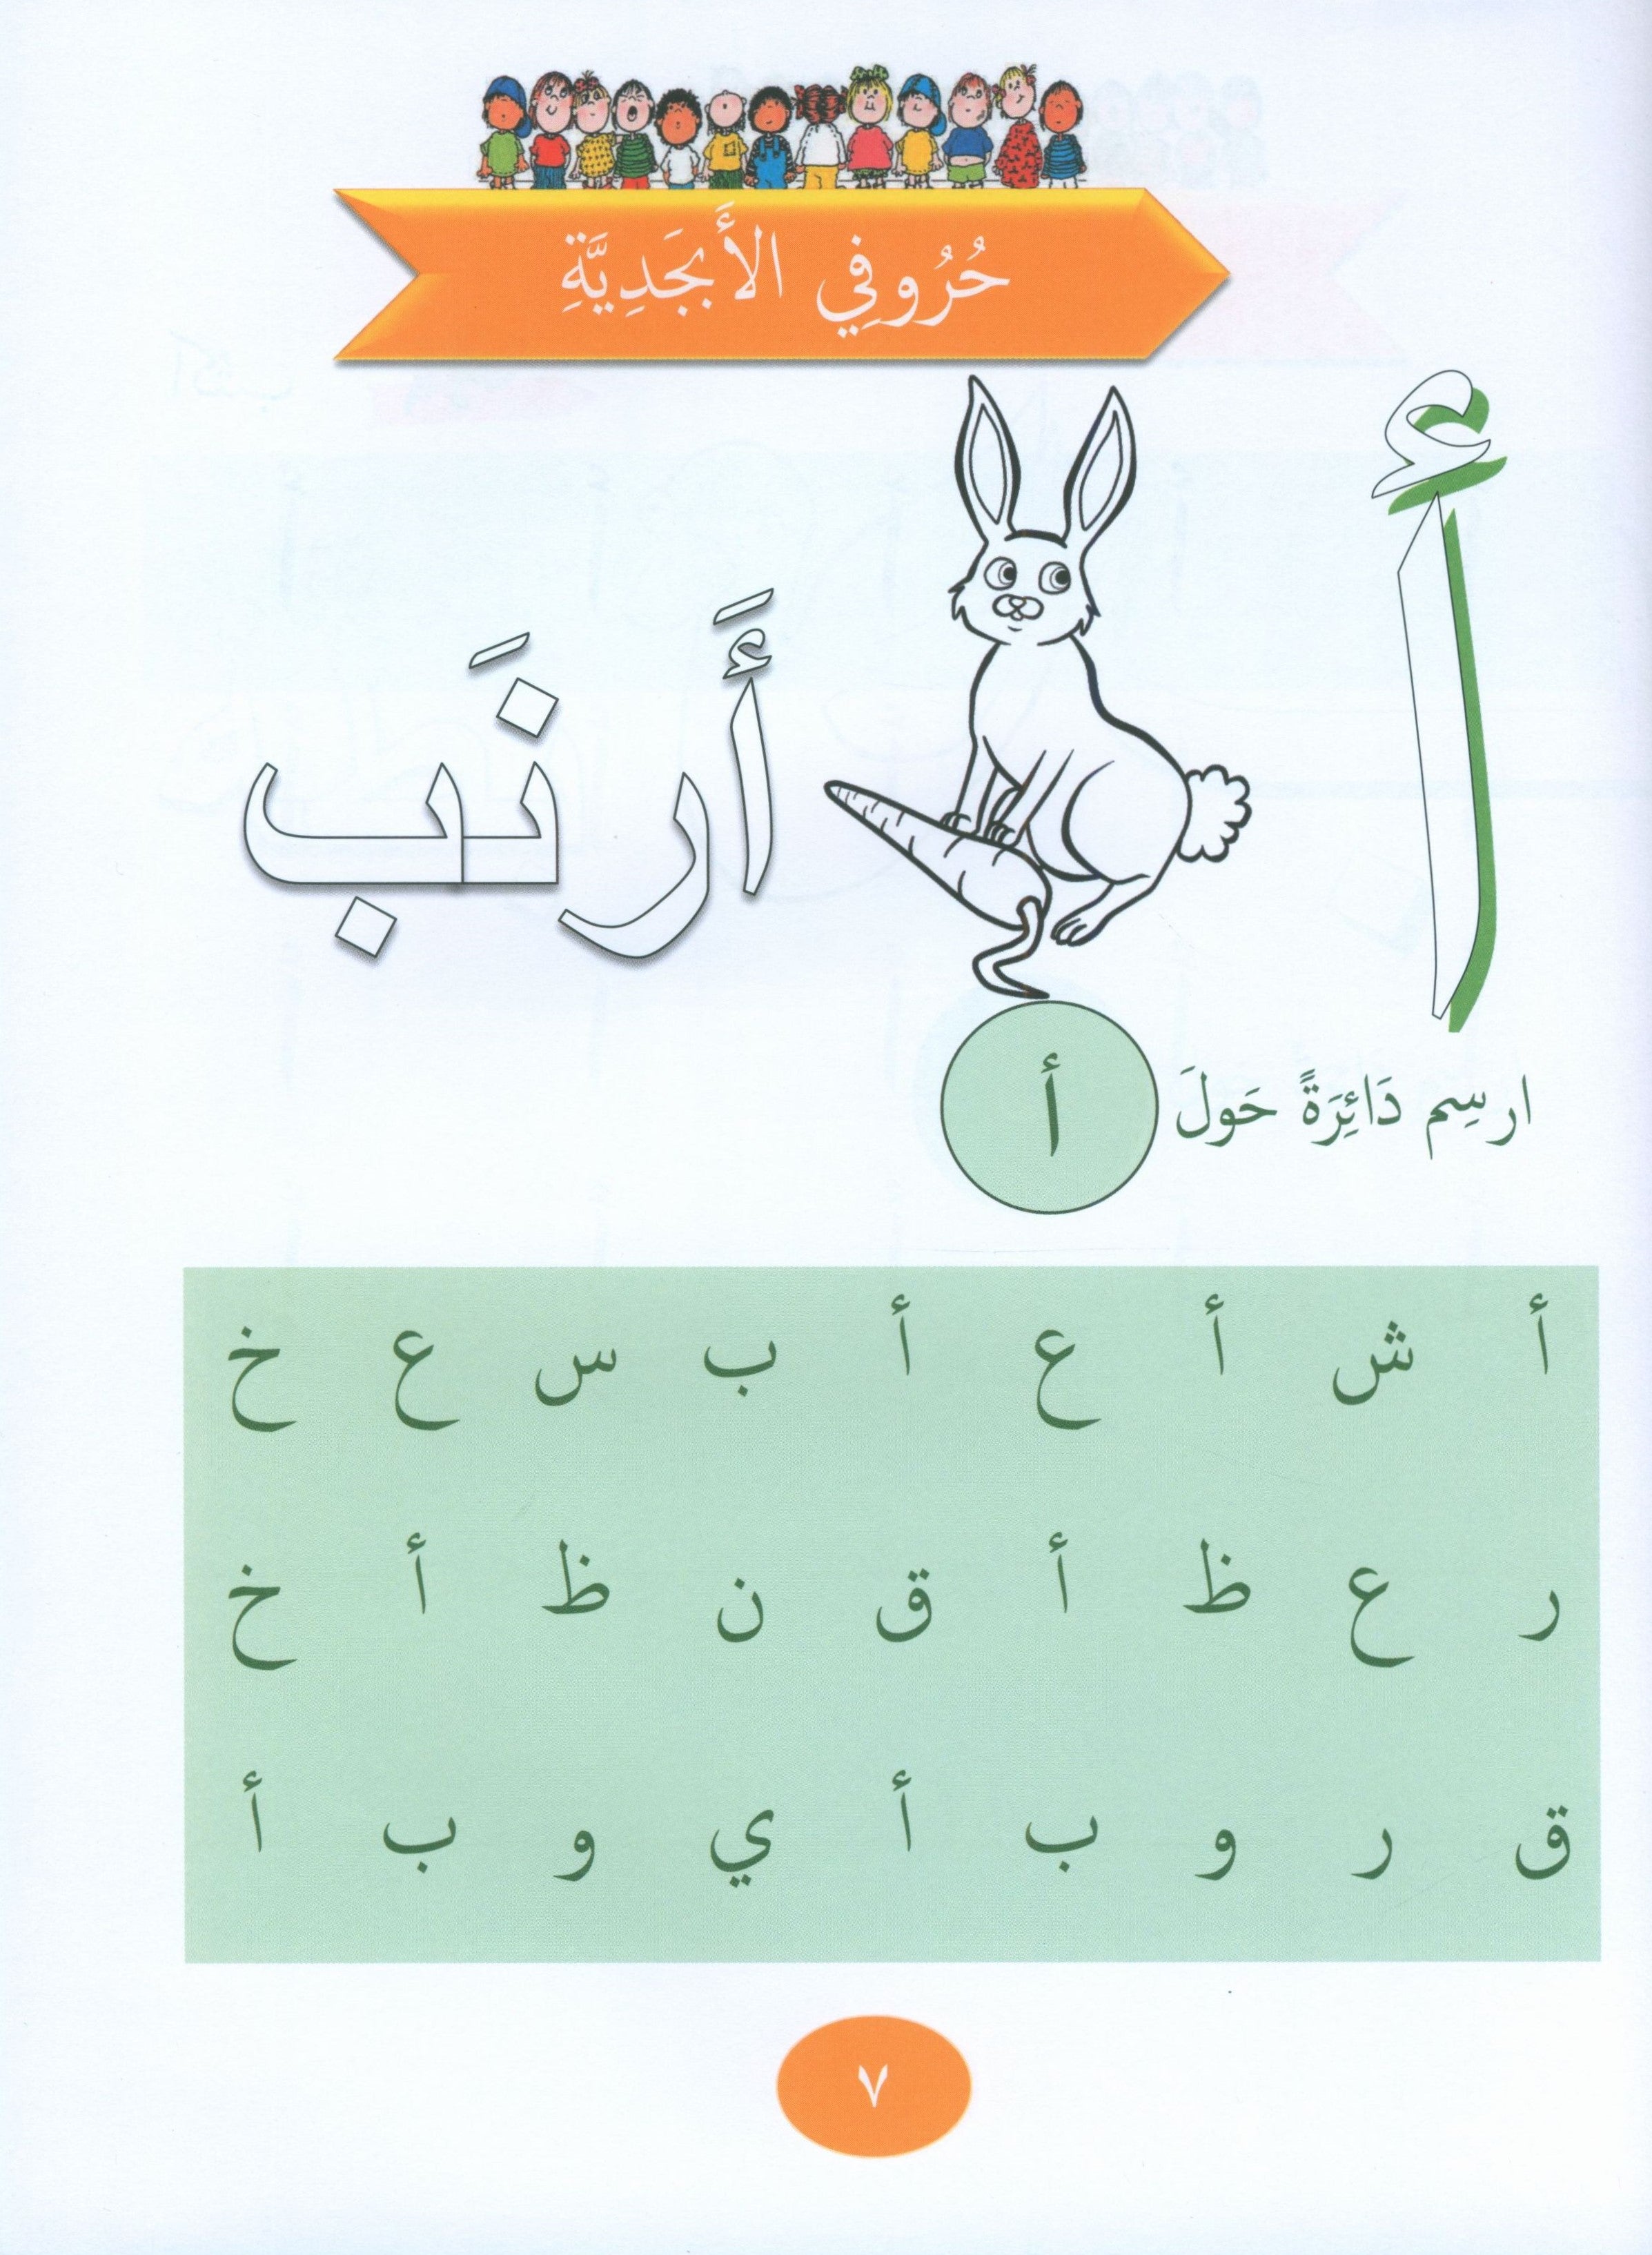 حُرُوفِي الأَبْجَدِيَّةِ
أ
أَرنَب
ارسِم دَائِرَةً حَولَ أ
أ ش أ ع أ ب س ع خ
ر ع ظ أ ق ن ظ أ خ
ق ر و ب أ ي و ب أ
٧